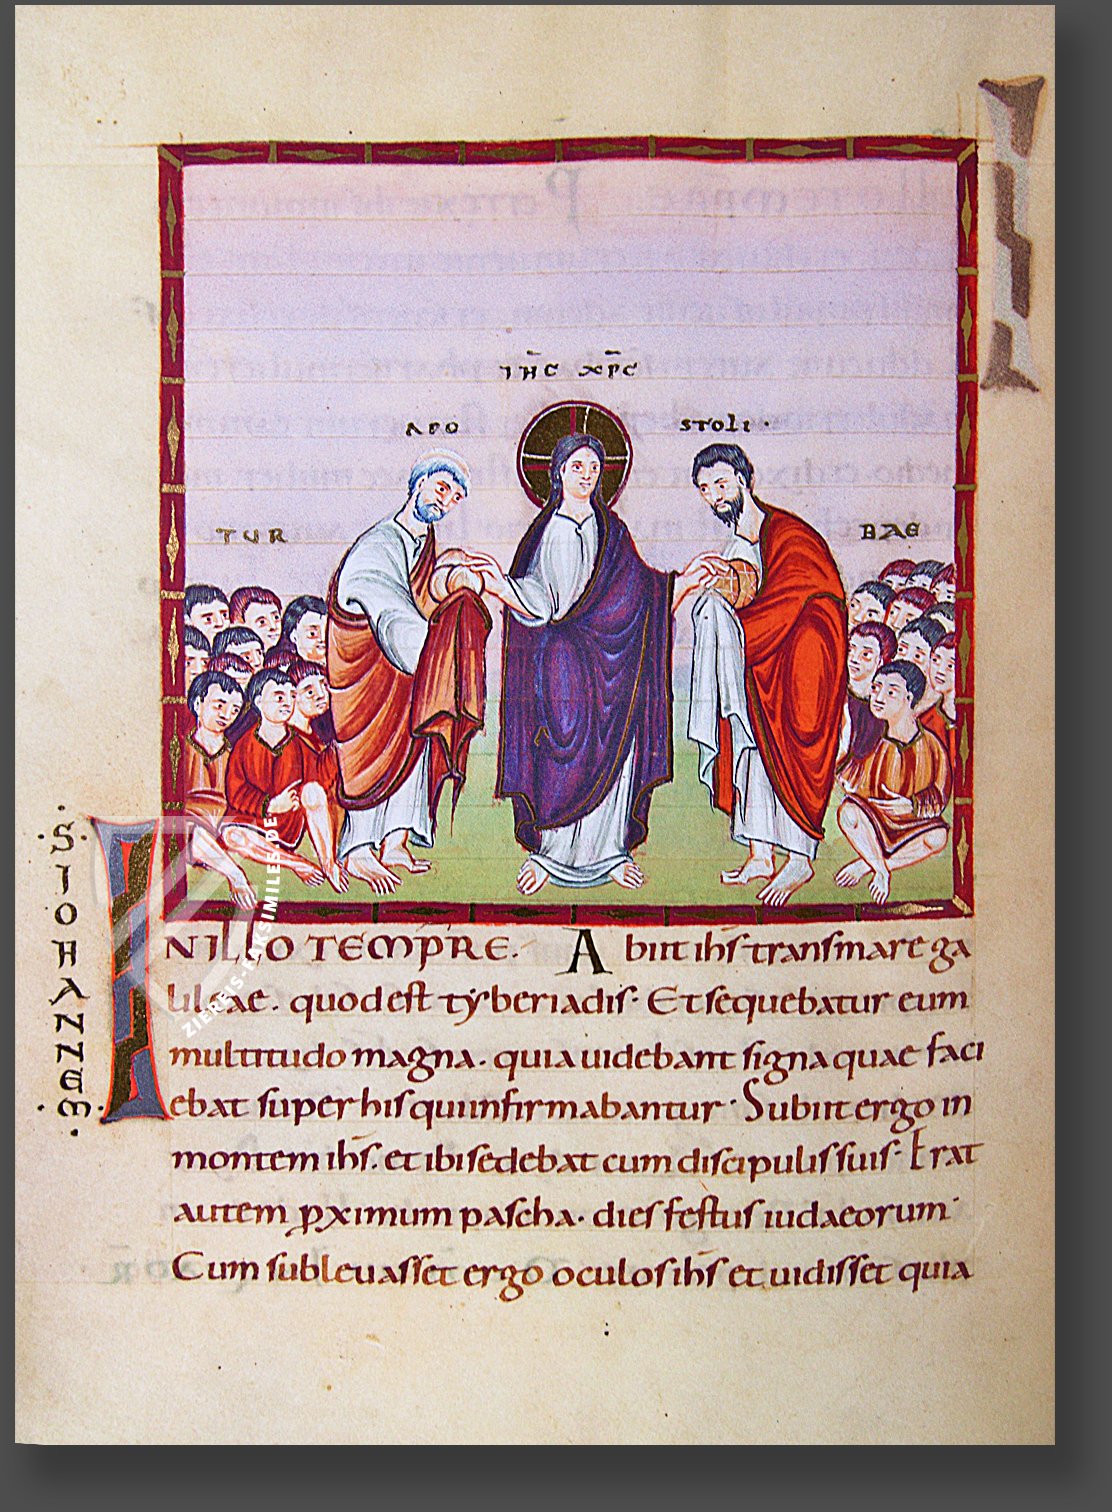 IHC XPC
APO STOLI ·
TUR BAE
· S · IOHANNEM ·
IN ILLO TEMPRE. Abiit ihs trans mare ga
lileae. quod est tyberiadis· Et sequebatur eum
multitudo magna. quia uidebant signa quae faci
ebat super his qui infirmabantur· Subiit ergo in
montem ihs. et ibi sedebat cum discipulis suis· Erat
autem pximum pascha. dies festus iudaeorum·
Cum subleuasset ergo oculos ihs et uidisset quia
ZIEREIS-FAKSIMILES.DE